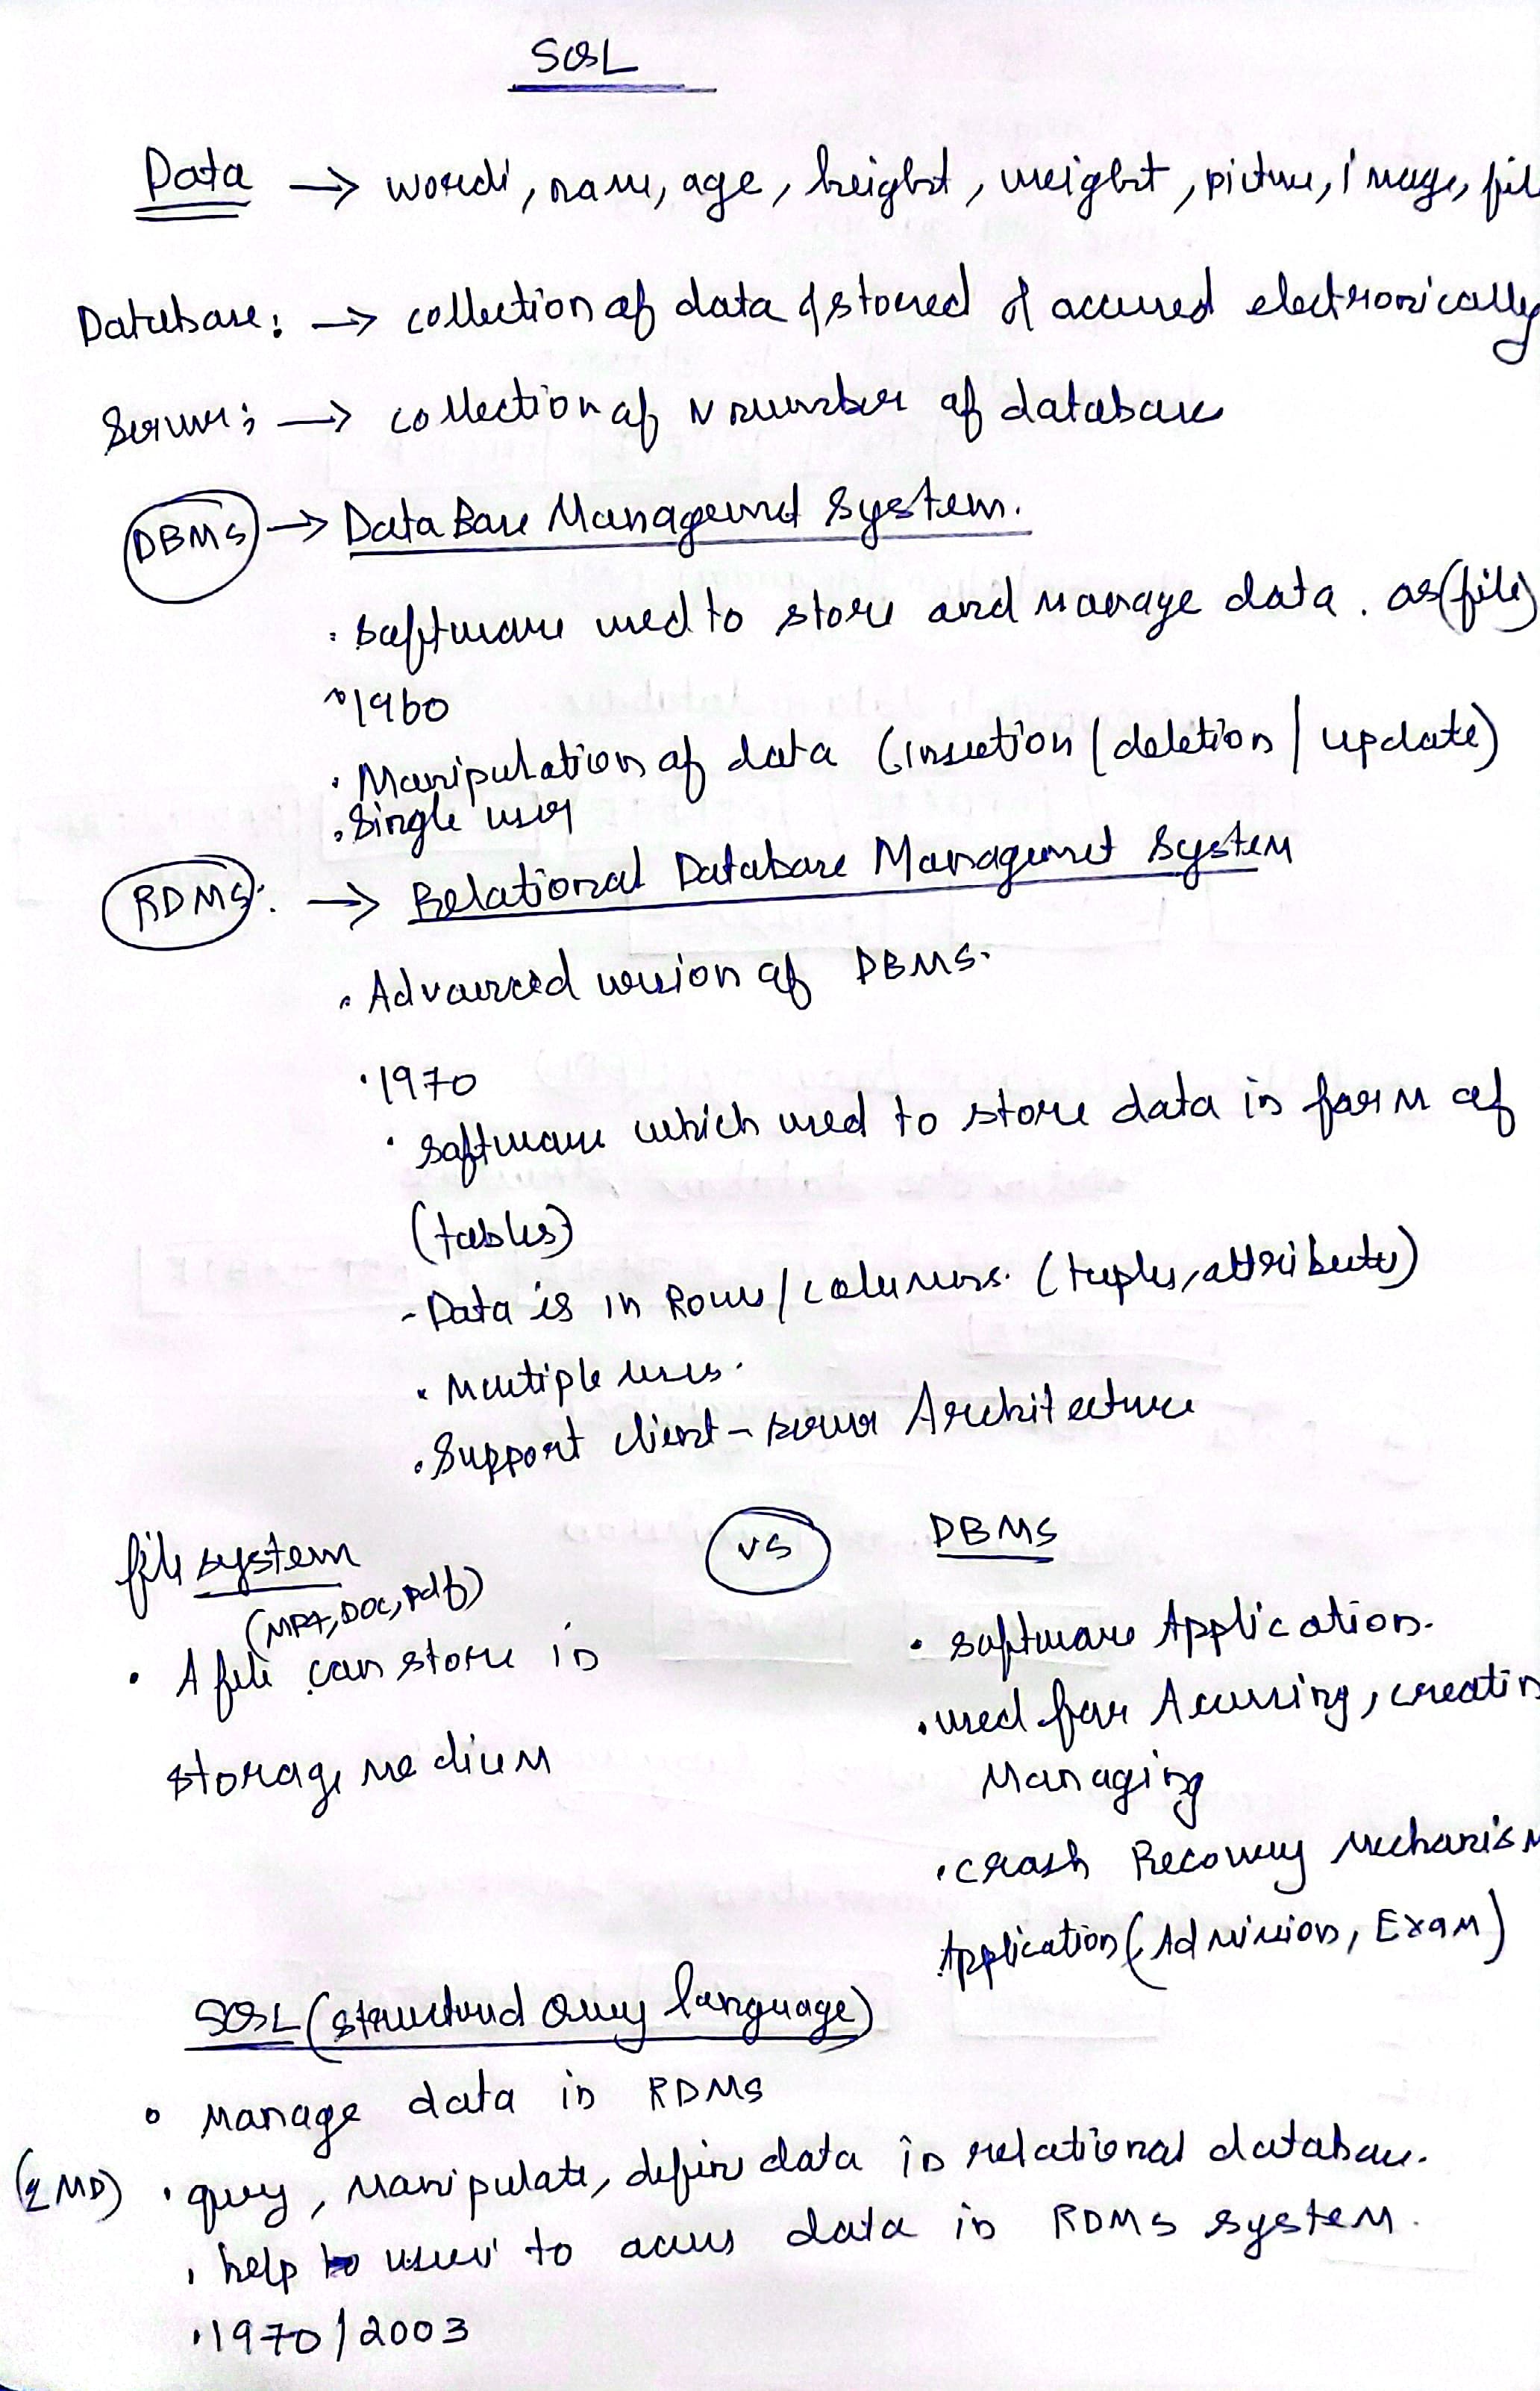 SQL
Data → words, name, age, height, weight, picture, image, fil
Database: → collection of data & stored & accessed electronically
Server: → collection of N number of databases
DBMS → DataBase Management System.
• Software used to store and manage data. as (file)
• 1960
• Manipulation of data (insertion / deletion / update)
• Single user
RDMS: → Relational Database Management System
• Advanced version of DBMS.
• 1970
• Software which used to store data in form of
(tables)
- Data is in Rows / columns. (tuples, attributes)
• Multiple users.
• Support client - server Architecture
file system vs DBMS
(MP4, DOC, Pdf)
• A file can store in
storage medium
• Software Application.
• used for Accessing, creatin
Managing
• Crash Recovery Mechanism
Application (Admission, Exam)
SQL (structured Query language)
• Manage data in RDMS
(QMD) • query, Manipulate, define data in relational database.
• help to users to access data in RDMS system.
• 1970 / 2003